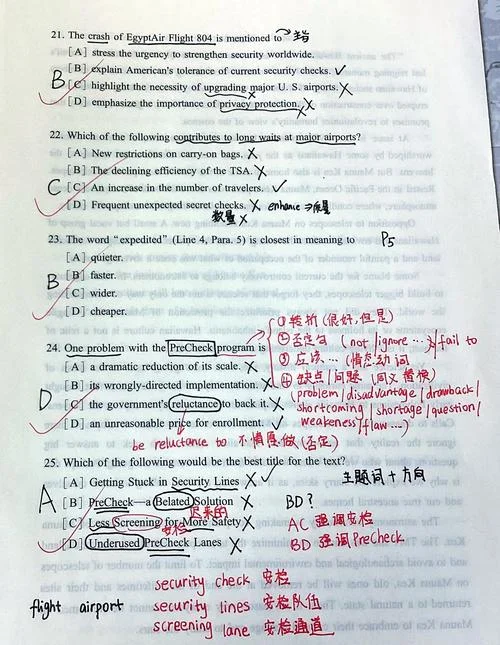 21. The crash of EgyptAir Flight 804 is mentioned to
[A] stress the urgency to strengthen security worldwide.
B [B] explain American's tolerance of current security checks. ✓
[C] highlight the necessity of upgrading major U. S. airports. X
[D] emphasize the importance of privacy protection. X
22. Which of the following contributes to long waits at major airports?
[A] New restrictions on carry-on bags. X
[B] The declining efficiency of the TSA. X
C [C] An increase in the number of travelers. ✓
[D] Frequent unexpected secret checks. X enhance → 质量
数量 X
23. The word "expedited" (Line 4, Para. 5) is closest in meaning to P5
[A] quieter.
B [B] faster.
[C] wider.
[D] cheaper.
①转折(很好,但是)
②否定句(not/ignore…)/fail to
24. One problem with the PreCheck program is
③应该…(情态动词
[A] a dramatic reduction of its scale. X
④缺点/问题(同义替换)
[B] its wrongly-directed implementation. X
(problem/disadvantage/drawback/
D [C] the government's reluctance to back it. X
shortcoming/shortage/question/
[D] an unreasonable price for enrollment. ✓
weakness/flaw…)
be reluctance to 不情愿做(否定)
25. Which of the following would be the best title for the text?
A [A] Getting Stuck in Security Lines X ✓ 主题词+方向
[B] PreCheck—a Belated Solution X BD?
迟来的
[C] Less Screening for More Safety X AC 强调安检
安检
[D] Underused PreCheck Lanes X BD 强调PreCheck
security check 安检
flight airport security lines 安检队伍
screening lane 安检通道